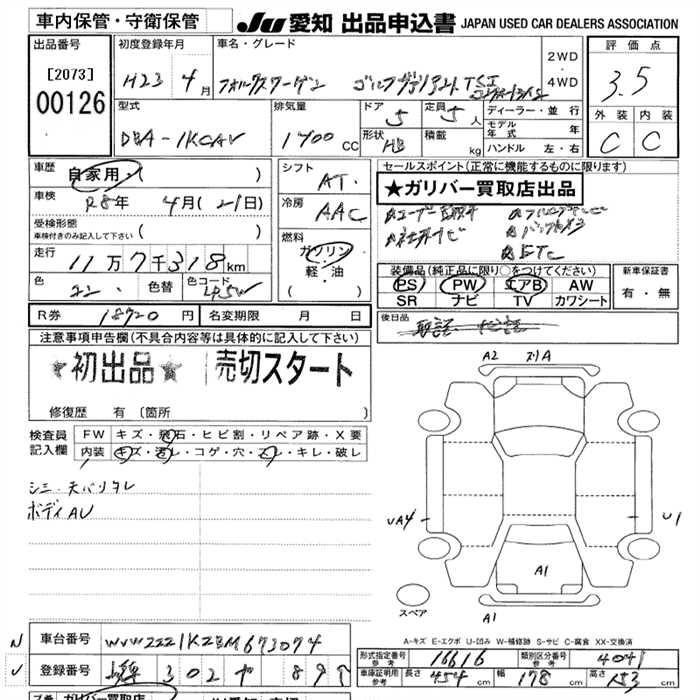 車内保管・守衛保管
JU 愛知 出品申込書 JAPAN USED CAR DEALERS ASSOCIATION
出品番号
[2073]
00126
初度登録年月
H23年 4月
車名・グレード
フォルクスワーゲン ゴルフヴァリアント TSI
2WD
・
4WD
評価点
3.5
外装 内装
C C
型式
DBA-1KCAV
排気量
1400 CC
ドア
5
定員
5人
形状
HB
積載
kg
ディーラー・並行
モデル年式 年
ハンドル 左・右
車歴
自家用・( )
車検
R8年 4月(21日)
受検形態
車検付きのみ記入して下さい ( )
走行
11万7千318km
色
色替
色コード
LP5W
シフト
AT
冷房
AAC
燃料
ガソリン
・
軽・油
( )
セールスポイント(正常に機能するものに限ります)
★ガリバー買取店出品
ETC
装備品(純正品に限り○をつけてください)
PS PW エアB AW
SR ナビ TV カワシート
新車保証書
有・無
R券 18920円 名変期限 月 日
後日品
注意事項申告欄(不具合内容等は具体的に記入して下さい)
★初出品★ 売切スタート
修復歴 有 〔箇所 〕
検査員記入欄
FW キズ・飛石・ヒビ割・リペア跡・X要
内装 キズ・汚レ・コゲ・穴・スレ・キレ・破レ
シミ・天バリタレ
ボディAU
A2 スリA
UA4 U1
A1
スペア A1
A-キズ E-エクボ U-凹み W-補修跡 S-サビ C-腐食 XX-交換済
車台番号 WVWZZZ1KZBM673074
登録番号 302 ヤ 897
形式指定番号 参考 16616 類別区分番号 参考 4041
車庫証明用 参考 長さ 454cm 幅 178cm 高さ 153cm
ガリバー買取店